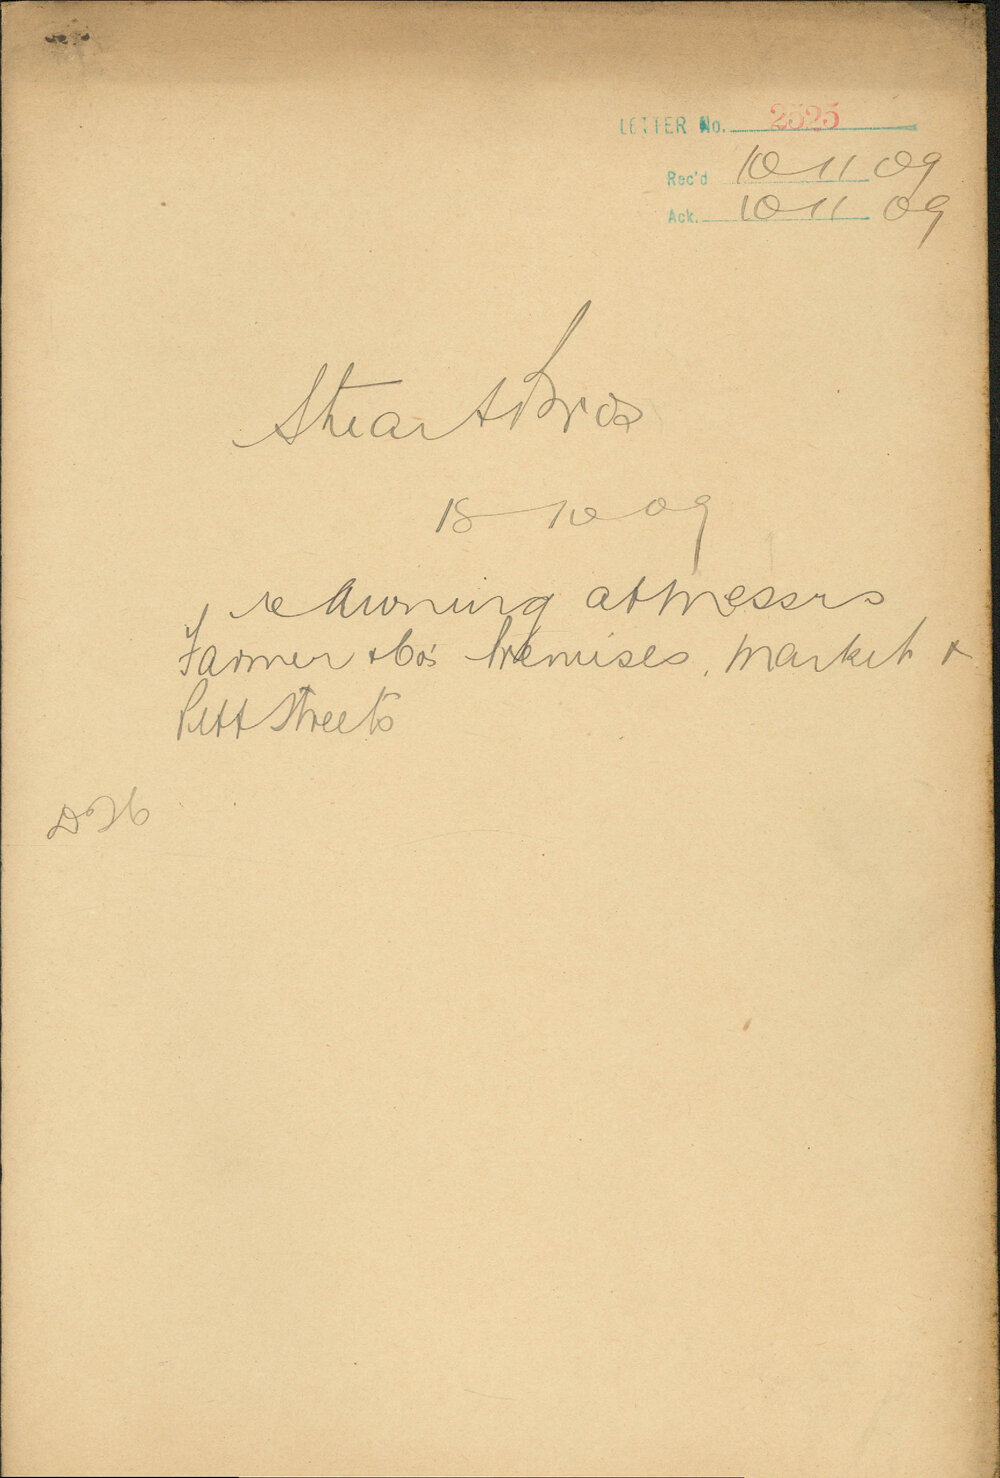 LETTER No. 2525
Rec'd 10 11 09
Ack. 10 11 09
Stuart Bros
18 10 09
re Awning at Messrs
Farmer & Co's Premises, Market &
Pitt Streets